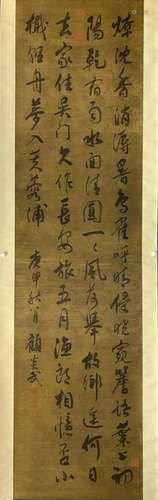 燎沈香消溽暑鳥雀呼晴侵曉窺簷語葉上初
陽乾宿雨水面清圓一一風荷舉故鄉遙何日
去家住吳門久作長安旅五月漁郎相憶否小
楫輕舟夢入芙蓉浦 庚申秋月 顧炎武